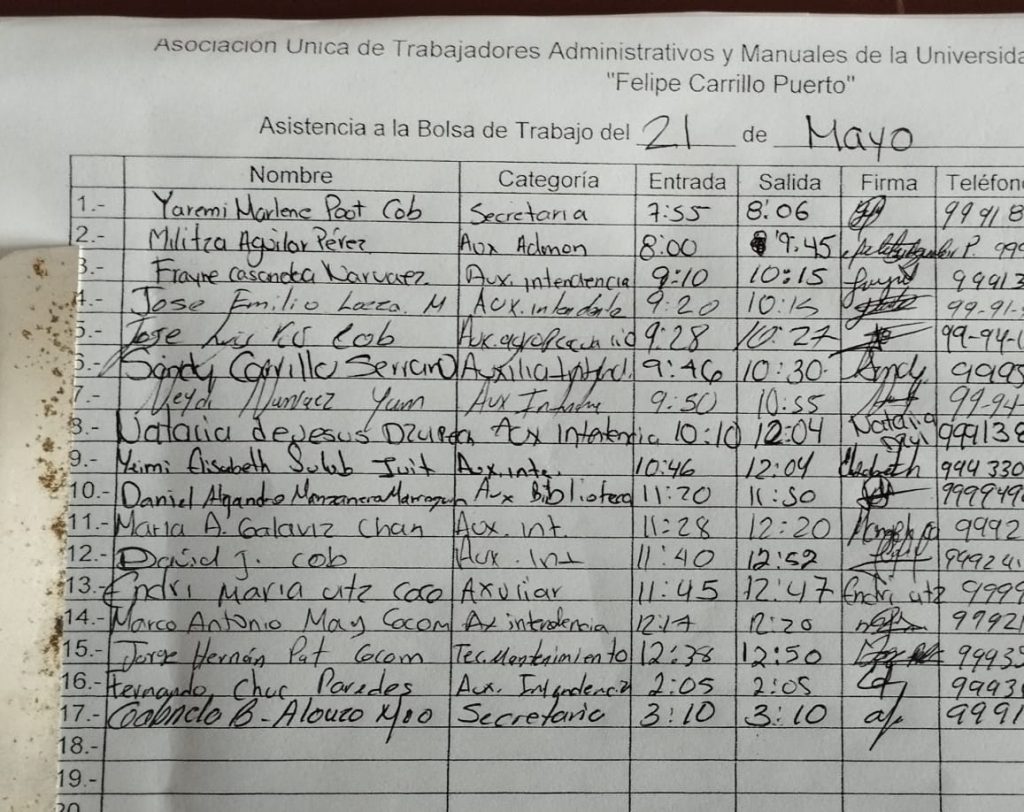 Asociación Única de Trabajadores Administrativos y Manuales de la Universida
"Felipe Carrillo Puerto"
Asistencia a la Bolsa de Trabajo del 21 de Mayo
Nombre Categoría Entrada Salida Firma Teléfono
1.- Yaremi Marlene Poot Cob Secretaria 7:55 8:06 99918
2.- Militza Aguilar Pérez Aux Admon 8:00 9:45 999
3.- Frayre Narvaez Aux. intendencia 9:10 10:15 99913
4.- Jose Emilio M Aux. 9:20 10:15 99-91-
5.- Jose Luis Cob Aux. 9:28 10:27 99-94-
6.- Sandy Carrillo Serrano 9:46 10:30 9995
7.- Neydi Yam Aux 9:50 10:55 99-94
8.- Natalia de Jesus Aux Intertencia 10:10 12:04 Natalia 999138
9.- Yeimi Elisabeth Sulub Aux. inte. 10:46 12:04 Elisabeth 999 330
10.- Daniel Aux Biblioteca 11:20 11:50 9999494
11.- Maria A. Galaviz Chan Aux. int. 11:28 12:20 9992
12.- David J. Cob Aux. Int 11:40 12:52 999241
13.- Endri Maria utz Coco Axuliar 11:45 12:47 Endri utz 9999
14.- Marco Antonio May Cocom Ax intendencia 12:17 12:20 99921
15.- Jorge Hernán Pat Cocom Tec. Mantenimiento 12:38 12:50 99935
16.- Fernando Chuc Paredes Aux. Intendencia 2:05 2:05 9993
17.- B- Alonzo Moo Secretario 3:10 3:10 9991
18.-
19.-
20